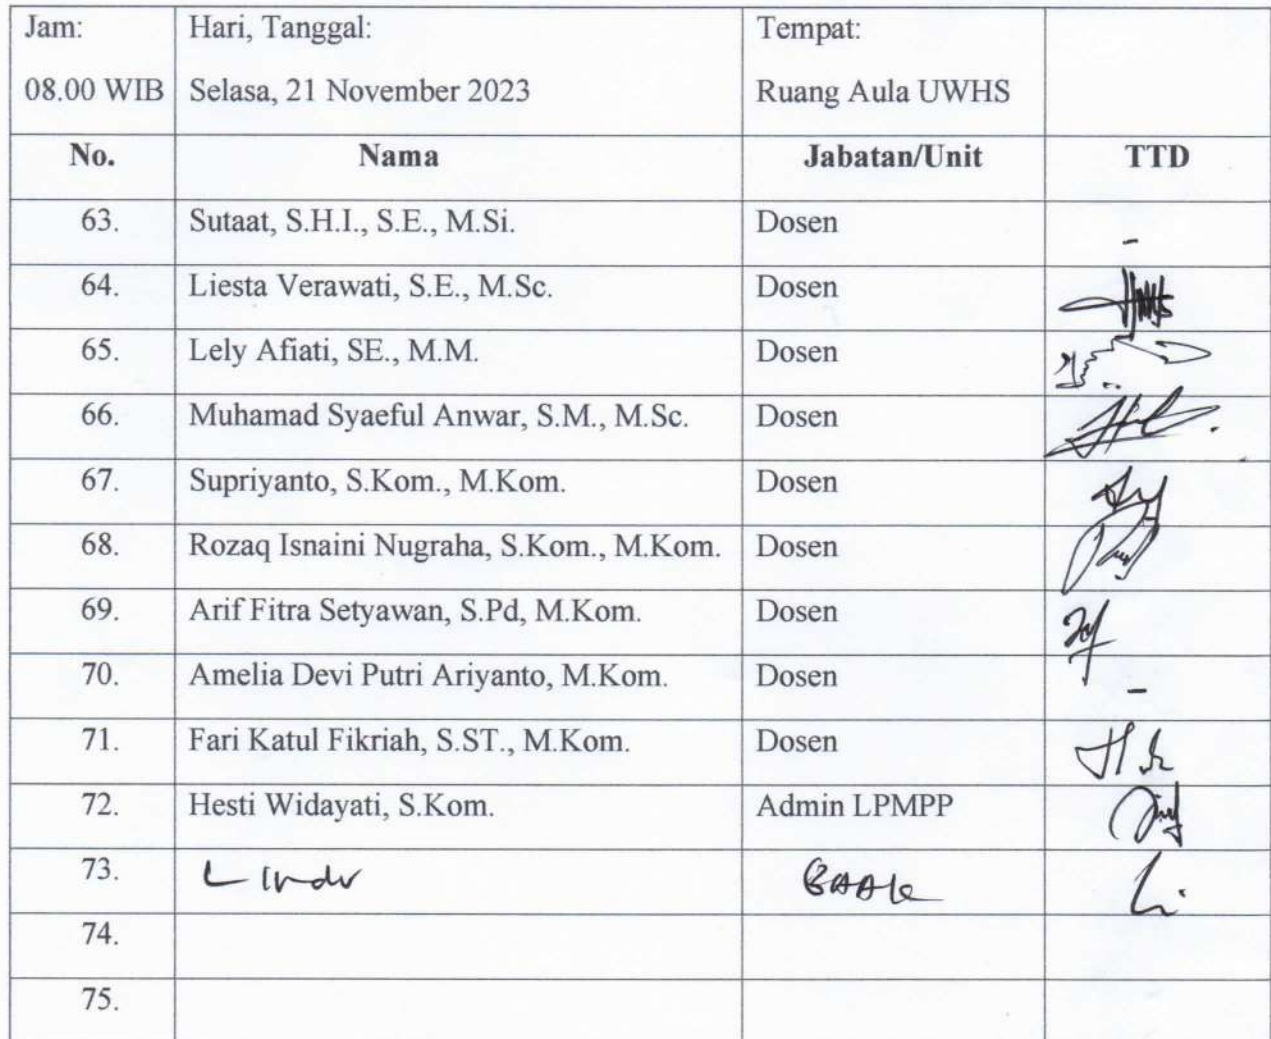 Jam: Hari, Tanggal: Tempat:
08.00 WIB Selasa, 21 November 2023 Ruang Aula UWHS
No. Nama Jabatan/Unit TTD
63. Sutaat, S.H.I., S.E., M.Si. Dosen -
64. Liesta Verawati, S.E., M.Sc. Dosen
65. Lely Afiati, SE., M.M. Dosen
66. Muhamad Syaeful Anwar, S.M., M.Sc. Dosen
67. Supriyanto, S.Kom., M.Kom. Dosen
68. Rozaq Isnaini Nugraha, S.Kom., M.Kom. Dosen
69. Arif Fitra Setyawan, S.Pd, M.Kom. Dosen
70. Amelia Devi Putri Ariyanto, M.Kom. Dosen -
71. Fari Katul Fikriah, S.ST., M.Kom. Dosen
72. Hesti Widayati, S.Kom. Admin LPMPP
73. BAAK
74.
75.